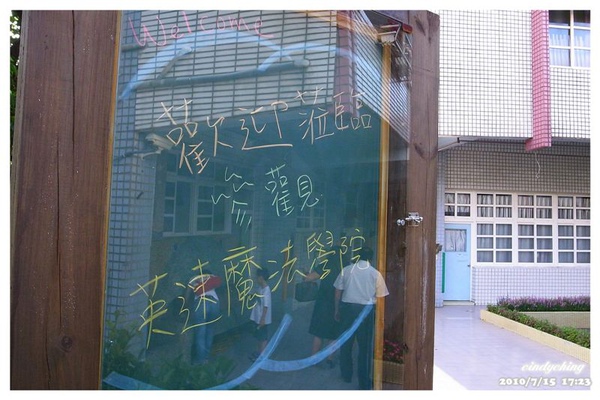 Welcome
歡迎蒞臨
參觀
英速魔法學院
cindyching
2010/7/15 17:23